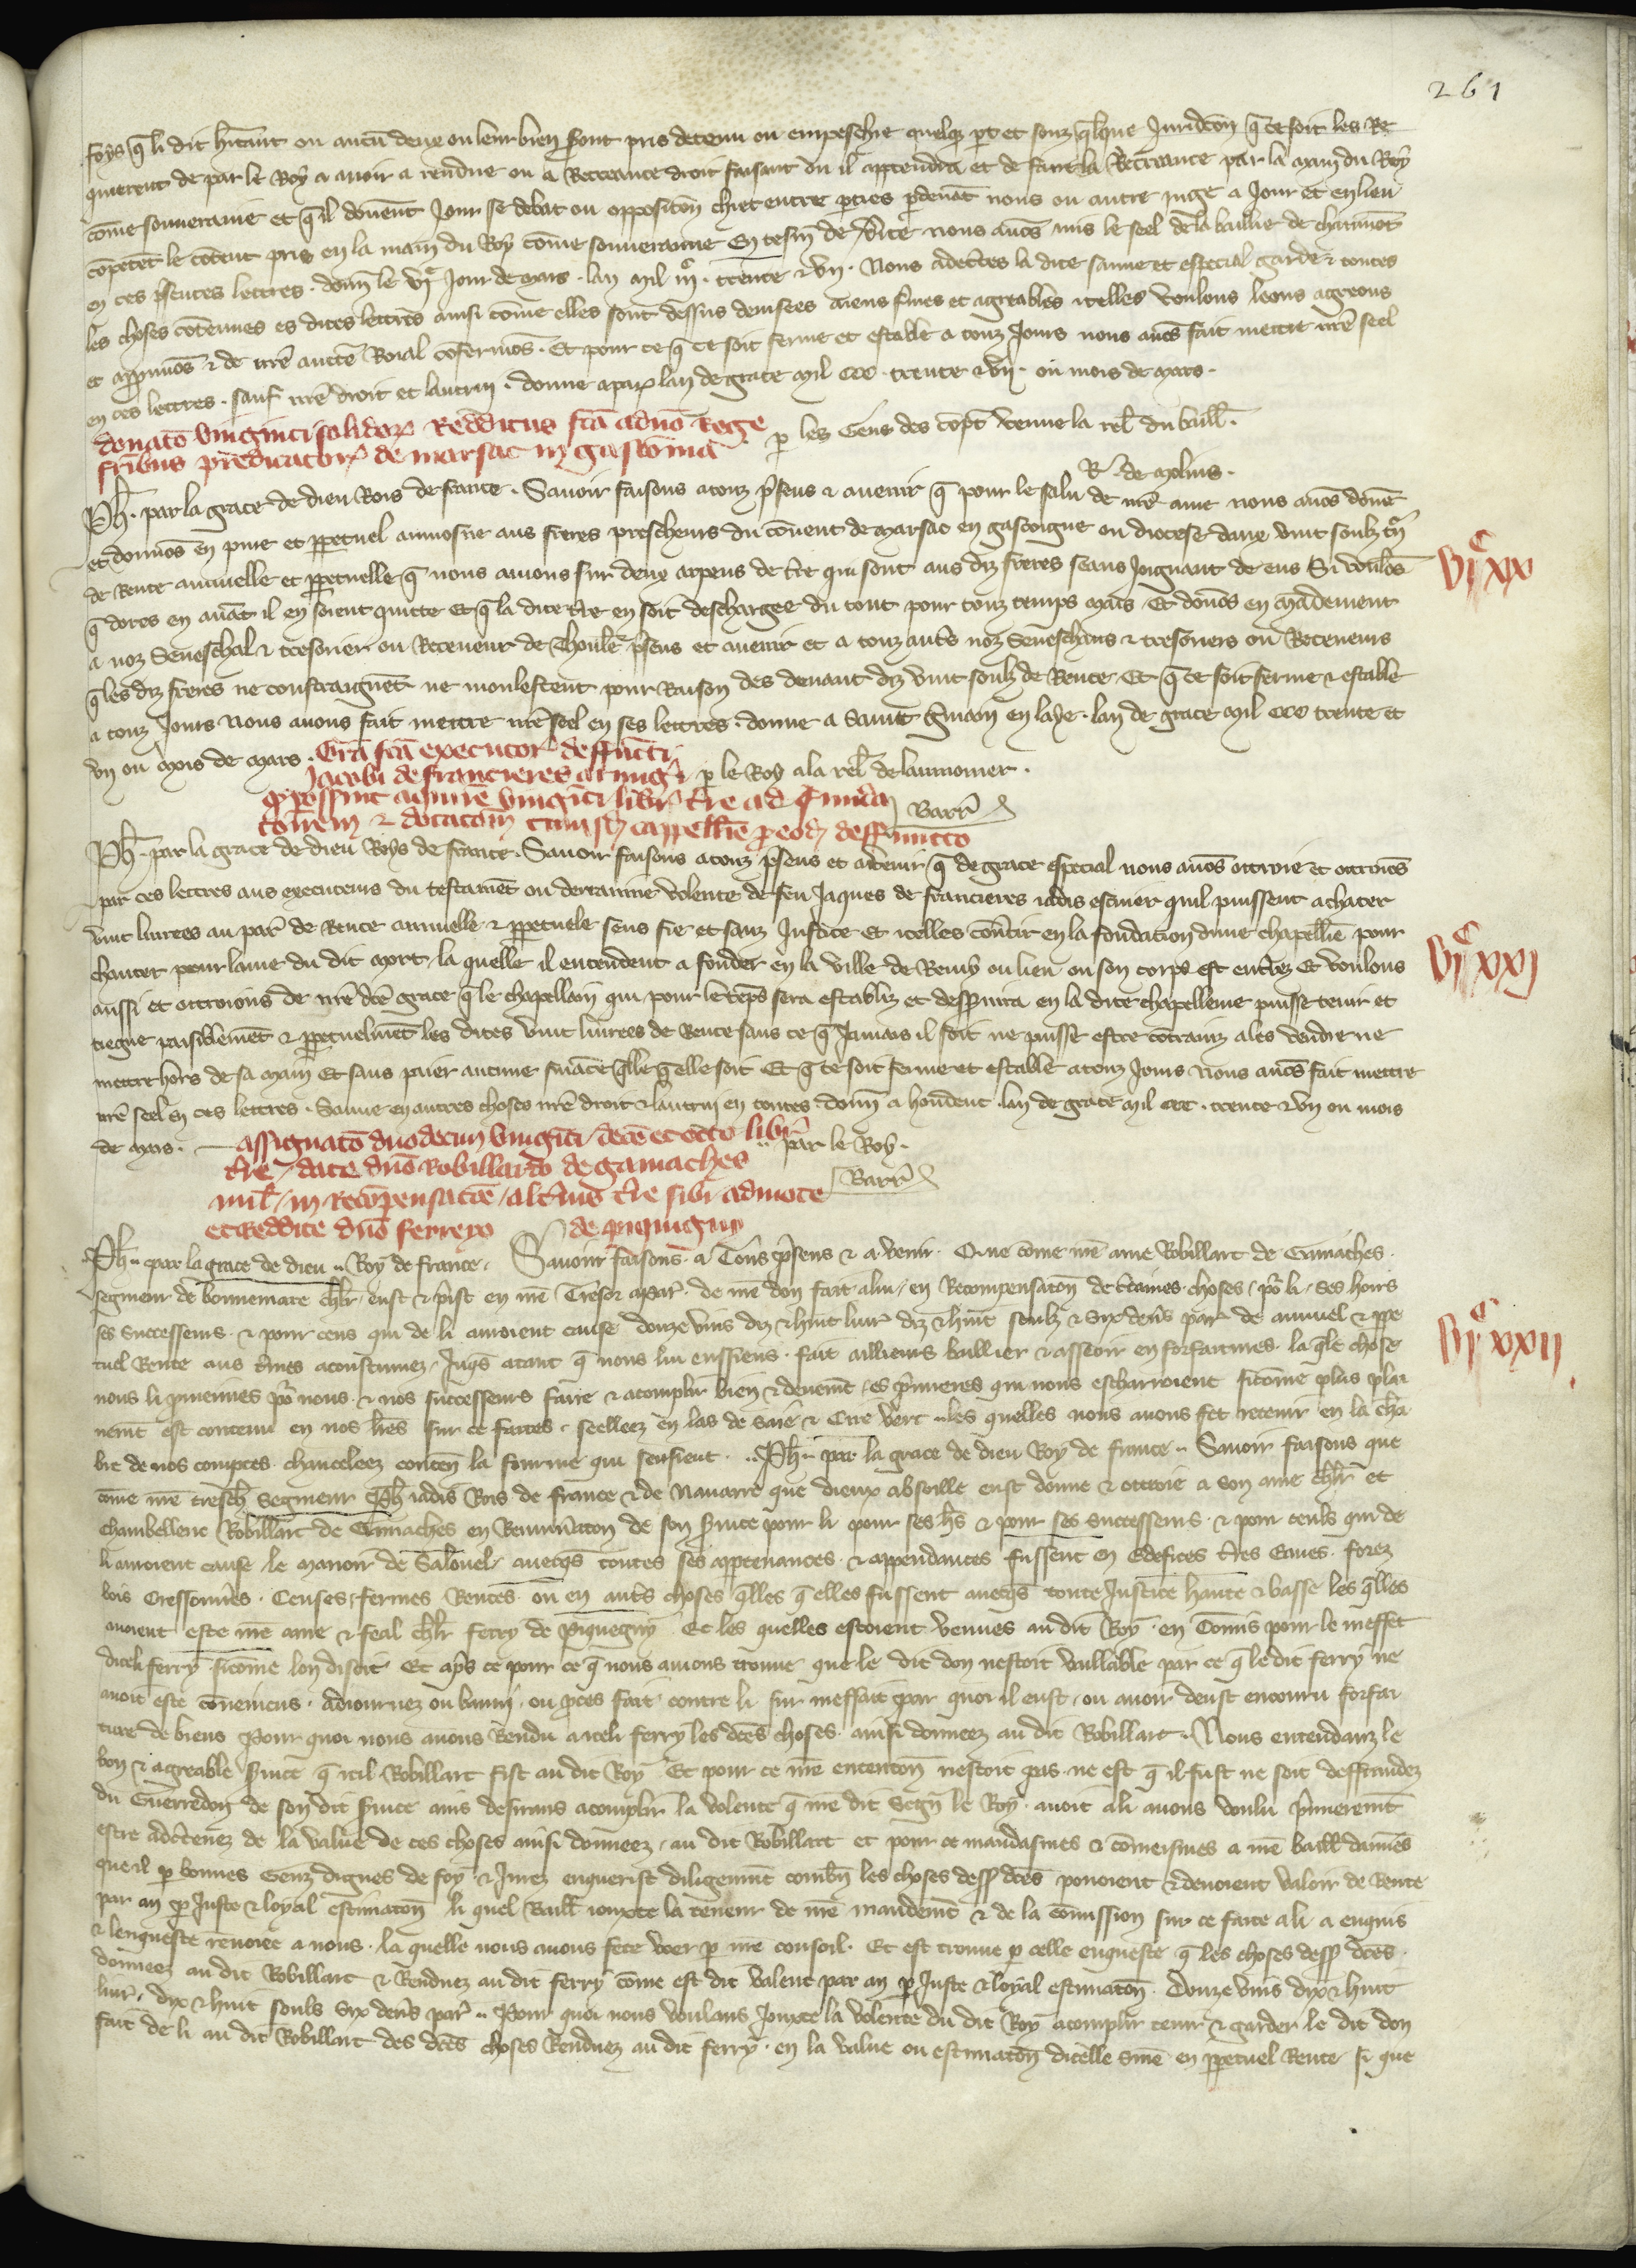 261
foys q̄ li dit hītant ou aucū deux ou leur bien seront pris detenu ou empeschie quelq̄ part et souz q̄lque Juridcōn q̄ ce soit les Re
quierent de par le Roy a avoir a rendue ou a Recreance droit faisant ou il apptendra et de faire la Recreance par la main du Roy
cōme souveraine et q̄ il dōnent Jour se debat ou oppositōn chiet entre pties pdevāt nous ou autre juge a Jour et en lieu
cōpetēt le cōtent pris en la main du Roy cōme souveraine En tesm̄ de v̄ite nous avōs mis le seel de la baillie de chaumōt
en ces p̄sentes lettres. dōnn̄ le vj͛ Jour de mars. lan mil iij͛. trente & vij. Nous adec̄tes la dite sauve et especial garde & toutes
les choses cōtenues es dites lettres ainsi cōme elles sont dessus devisees aiens f̄mes et agreables icelles voulons loons agreons
et appvuōs & de nr̄e auctē Roial cōfermōs. Et pour ce q̄ ce soit ferme et estable a touz Jours nous avōs fait mettre nr̄e seel
en ces lettres. sauf nr̄e droit et lautruy. donne a par̄ lan de grace mil ccc. trente & vij. ou mois de mars.
p les Gens des cōpt̄ venue la rel̄ du baill̄.
R. de molins.
donatō viginti solidor̄ Redditus fc̄a a dnō Rege
fr̄ibus predicator̄ de marsac in gasconia
Ph̄. par la grace de dieu Rois de france. Savoir faisons a touz p̄sens & avenir q̄ pour le salu de nr̄e ame nous avōs dōnē
et donnōs en pure et ppetuel aumosne aus freres prescheurs du cōvent de marsac en gascoigne ou diocese daux vint soulz tn̄
de Rente annuelle et ppetuelle q̄ nous avions sur deux arpens de t̄re qui sont aus diz freres seans joignant de eus Si voulōs
q̄ dores en avāt il en soient quitte et q̄ la dite t̄re en soit deschargee du tout pour touz temps mais Et dōnōs en mādement
a noz Seneschal & tresorier ou Receveur de Thoul̄e p̄sens et avenir et a touz autr̄s noz Seneschaus & tresoriers ou Receveurs
q̄ les diz freres ne constraignēt ne molestent pour Raison des devant diz vint soulz de Rente Et q̄ ce soit ferme & estable
a touz Jours Nous avons fait mettre nr̄e seel en ses lettres. donne a Saint Gmain en laye. lan de grace mil ccc trente et
vij ou mois de mars.
vj͛ xx
Grā fc̄a executor̄ deffuncti
Jacobi de francieres armiḡi
q̄ possint aquirē viginti libr̄ t̄re ad
et dotatōm cappellīe p eod̄ deffuncto
p le Roy a la rel̄ de laumonier.
Barr̄
Ph̄. par la grace de dieu Roys de france. Savoir faisons a touz p̄sens et avenir q̄ de grace especial nous avōs ottroie et ottroiōs
par ces lettres aus executeurs du testamēt ou derraine volente de feu Jaques de francieres jadis escuier quil puissent achater
vint livrees au par̄ de Rente annuelle & ppetuele sens fie et sanz Justice Et icelles cōv̄tir en la fondation dune chapellīe pour
chanter pour lame du dit mort, la quelle il entendent a fonder en la ville de Remy ou lieu ou son corps est ent̄rez Et voulons
aussi et ottroions de nr̄e dc̄e grace q̄ le chapellain qui pour le tēps sera establiz et desservira en la dite chapellenie puisse tenir et
tiegne paisiblemēt & ppetuelmēt les dites vint livrees de Rente sans ce q̄ Jamais il soit ne puisse estre cōtrainz a les vendre ne
mettre hors de sa main Et sans paier aucune fināce q̄lle q̄lle soit Et q̄ ce soit ferme et estable a touz Jours Nous avōs fait mettre
nr̄e seel en ces lettres. Sauve en autres choses nr̄e droit & lautruy en toutes. dōnn̄ a houdent lan de grace mil ccc. trente & vij ou mois
de mars.
vj͛ xxj
par le Roy.
Barr̄
assignatō duodecim viginti / decē et octo libr̄
t̄re / date dnō Robillardo de gamaches
mil̄ / in Recōpensatōē / alt̄ius t̄re sibi admote
et Reddite dnō ferreyo de piquigny
Ph̄. par la grace de dieu. Roy de france. Savoir faisons. a Touz p̄sens & a venir. Que cōme nr̄e ame Robillart de Gamaches.
segneur de bonnemare chl̄r. eust & p̄ist en nr̄e Tresor a par̄. de nr̄e don fait a lui / en Recompensatōn de c̄taines choses / po͛ li / ses hoirs
ses successeurs. & pour ceus qui de li auroient cause douze vins diz & huit livr̄ diz & huit soulz & six den̄s par̄ de annuel & ppe
tuel Rente aus t̄mes acoustumez / Jusq̄s atant q̄ nous lui eussiens. fait aillieurs baillier & asseoir en forfaitures. la q̄le chose
nous li p̄meismes po͛ nous. & nos successeurs faire & acomplir bien & deuemt̄ / es p̄mieres qui nous escharroient sicōme plus plai
nemt̄ est contenu en nos lr̄es sur ce faites. seellees en las de soie & Cire vert. les quelles nous avons fet retenir en la chā
bre de nos comptes. chancelees contēn la fourme qui sensient. Ph̄. par la grace de dieu Roy de france. Savoir faisons que
cōme nr̄e tresch̄ segneur Ph̄ jadis Rois de france & de Navarre que dieux absoille eust donne & ottroie a son ame chl̄r et
chambellenc Robillart de Gamaches en Remun̄atōn de son s̄vice pour li pour ses hr̄s & pour ses successeurs. & pour ceuls qui de
li auroient cause / le manoir de Salouel. avecq̄s toutes ses appartenances. & appendances fussent en Edefices t̄res Eaues. forez
bois Cressonnieres. Censes, fermes Rentes. ou en autr̄s choses q̄lles q̄ elles fussent avecq̄s toute Justice haute & basse les q̄lles
avoient este nr̄e ame & feal chl̄r ferry de piquegny. Et les quelles estoient venues au dit Roy. en Commis pour le meffet
diceli ferry. sicōme lon disoit Et ap̄s ce pour ce q̄ nous avions trouve que le dit don nestoit vaillable par ce q̄ le dit ferry ne
avoit este cōvencus. adiournez ou banni. ou p̄ces fait. contre li sur meffait par quoi il eust. ou avoir deust encouru forfai
ture de biens Pour quoi nous avons Rendu a iceli ferry les dc̄es choses. ainsi donnees au dit Robillart. Nous entendanz le
bon & agreable s̄vice q̄ icil Robillart fist au dit Roy. Et pour ce nr̄e entention nestoit pas ne est q̄ il fust ne soit deffraudez
du Guerredon de son dit s̄vice ains desirans acomplir la volente q̄ nr̄e dit Seḡn le Roy. avoit a li avons voulu p̄mieremt̄
estre adc̄tenez de la value de ces choses ainsi donnees. au dit Robillart et pour ce mandasmes & cōmeismes a nr̄e baill̄ damiēs
que il p bonnes Genz dignes de foy & Jurez enquerist diligenmt̄ combn̄ les choses dess̄ dc̄es povoient & devoient valoir de Rente
par an p Juste & loyal estimatōn li quel Baill̄ iouxte la teneur de nr̄e mandemt̄ & de la cōmission sur ce faite a li a enquis
& lenqueste renvoiee a nous. la quelle nous avons fete veer p nr̄e conseil. Et est trouve p celle enqueste q̄ les choses dess̄ dc̄es.
donnees au dit Robillart & Rendues au dit ferry cōme est dit valent par an p Juste & loyal estimatōn. Douze vins dix & huit
livr̄. dix & huit souls Six den̄s par̄. Pour quoi nous voulans Jouxte la volente du dit Roy acomplir tenir & garder le dit don
fait de li au dit Robillart des dc̄es choses Rendues au dit ferry. en la value ou estimatōn dicelle sōme en ppetuel Rente si que
vj͛ xxij